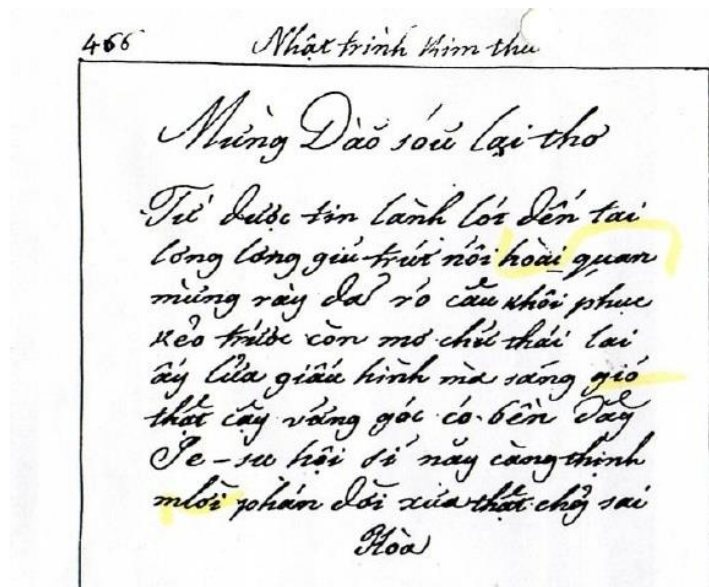 466 Nhật trình Kim thư
Mừng Dào sóữ lại thơ
Từ được tin lành lót đến tai
lóng lóng giũ trút nỗi hoài quan
mừng rày đã rõ câu khôi phục
kẻo trước còn mơ chữ thái lai
ấy lửa giấu hình mà sáng gió
thật cây vững gốc có bền dây
Je-su hội sĩ nay càng thịnh
mlời phán đời xưa thật chẳng sai
Hòa